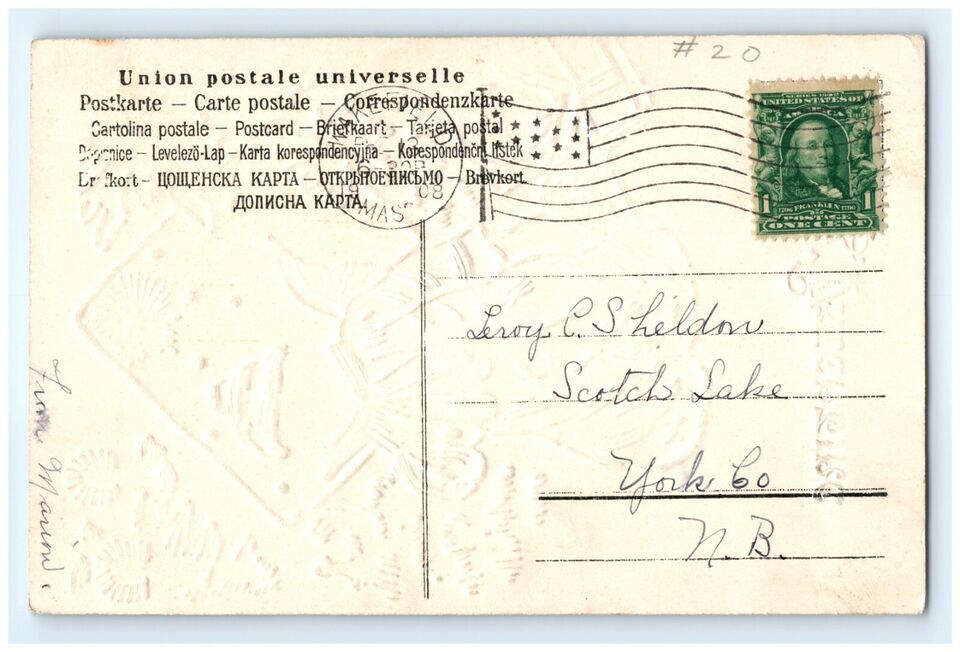 # 20
Union postale universelle
Postkarte – Carte postale – Correspondenzkarte
Cartolina postale – Postcard – Briefkaart – Tarjeta postal
Dopisnice – Levelező-Lap – Karta korespondencyjna – Korespondenčni listek
Brefkort – ЦОЩЕНСКА КАРТА – ОТКРЫТОЕ ПИСЬМО – Brevkort
ДОПИСНА КАРТА
WAKEFIELD
MASS
08
SERIES 1902
UNITED STATES OF AMERICA
1706 FRANKLIN 1790
1 POSTAGE 1
ONE CENT
Leroy C. Sheldon
Scotch Lake
York Co
N. B.
From Marion